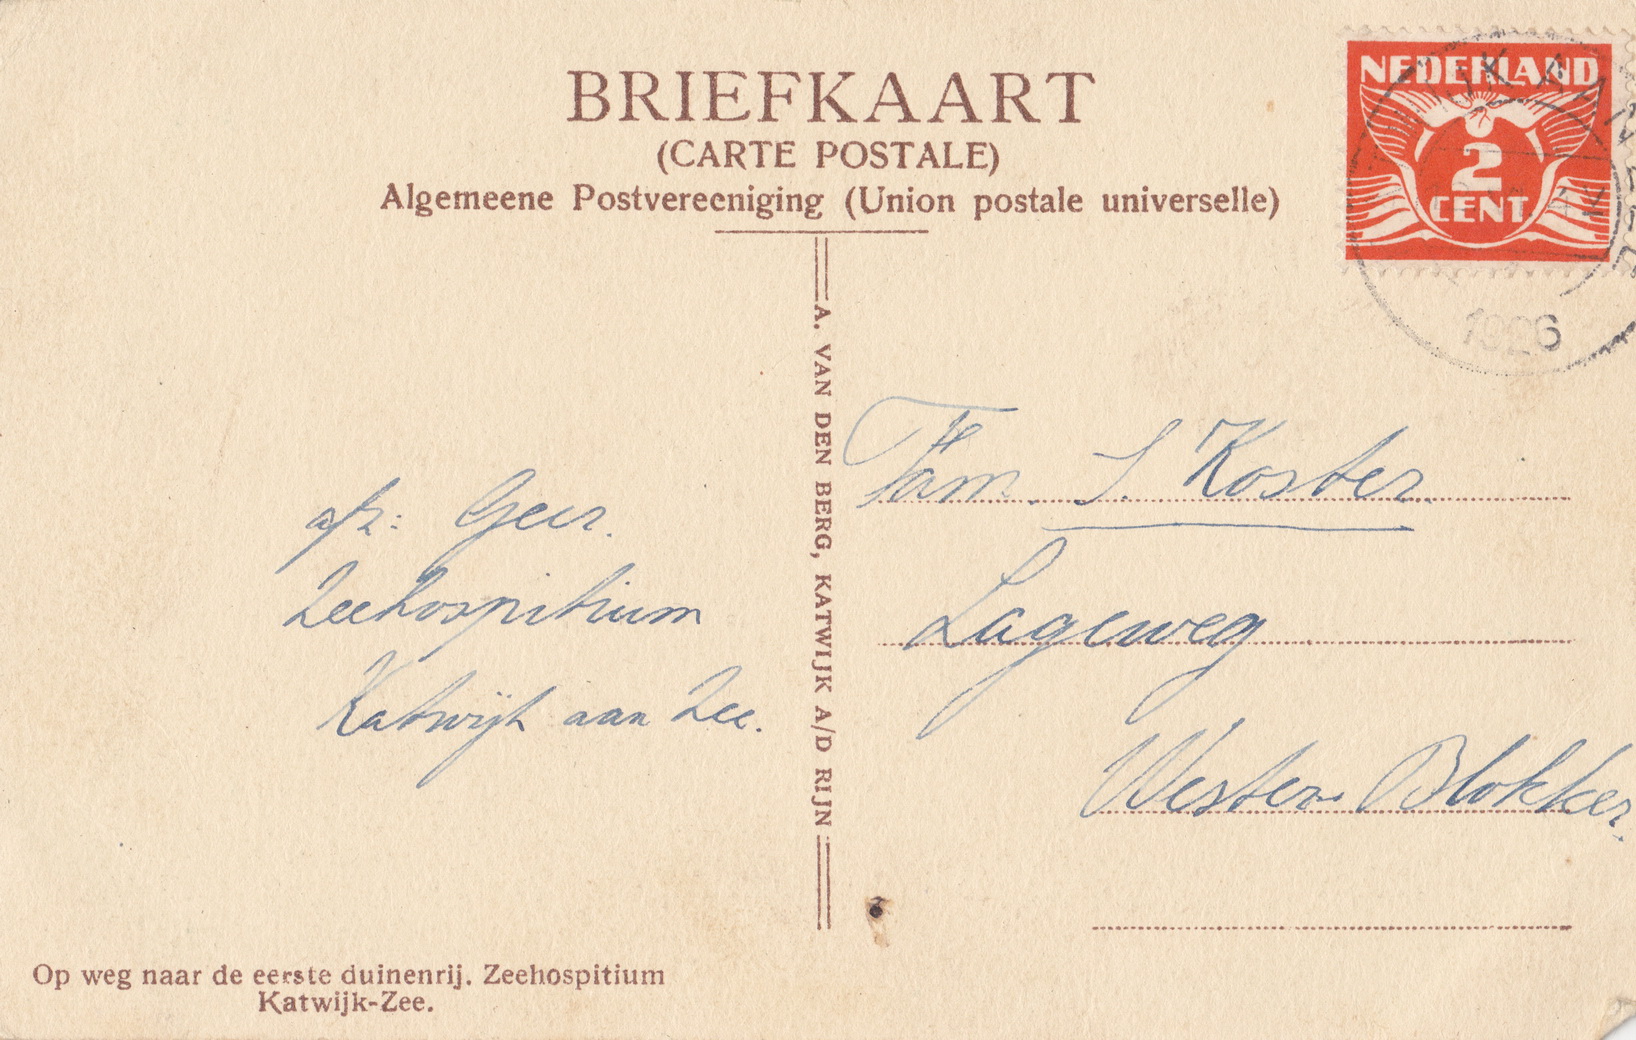 BRIEFKAART
(CARTE POSTALE)
Algemeene Postvereeniging (Union postale universelle)
NEDERLAND
2
CENT
1926
A. VAN DEN BERG, KATWIJK A/D RIJN
afz: Geer.
Zeehospitium
Katwijk aan Zee.
Fam. S. Koster
Lageweg
Wester Blokker.
Op weg naar de eerste duinenrij. Zeehospitium
Katwijk-Zee.